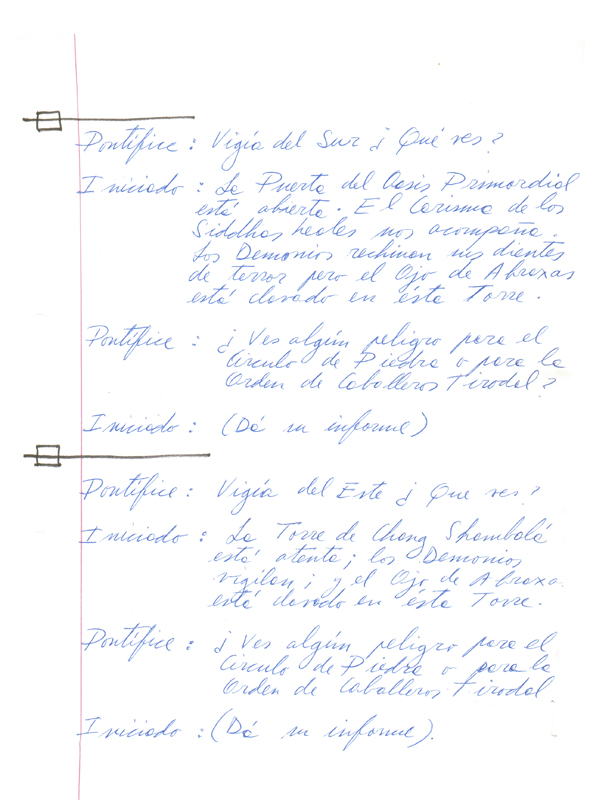 Pontífice : Vigía del Sur ¿ Qué ves ?
Iniciado : La Puerta del Oasis Primordial
está abierta. El Carisma de los
Siddhas leales nos acompaña.
Los Demonios rechinan sus dientes
de terror pero el Ojo de Abraxas
está clavado en ésta Torre.
Pontífice : ¿ Ves algún peligro para el
Circulo de Piedra o para la
Orden de Caballeros Tirodal ?
Iniciado : (Dá su informe)
Pontífice : Vigía del Este ¿ Que ves ?
Iniciado : La Torre de Chang Shambalá
está atenta; los Demonios
vigilan; y el Ojo de Abraxa.
está clavado en ésta Torre.
Pontífice : ¿ Ves algún peligro para el
Circulo de Piedra o para la
Orden de Caballeros Tirodal
Iniciado : (Dá su informe).